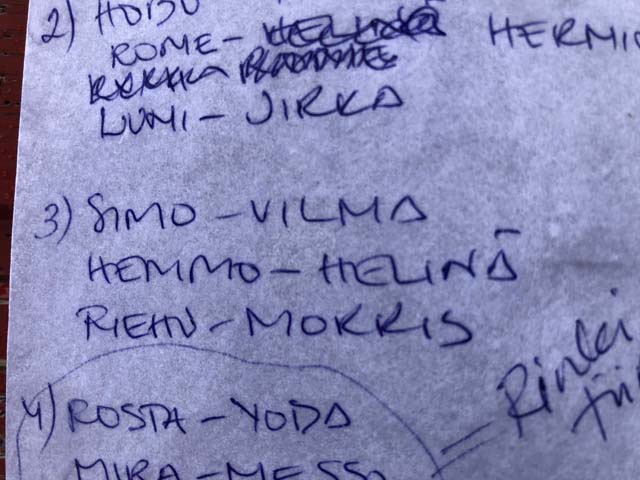 2) HOIDU
ROME - HERMI
LUMI - JIRKA
3) SIMO - VILMA
HEMMO - HELINÄ
RIEHU - MORRIS
4) ROSTA - YODA
MIRA - MESSI